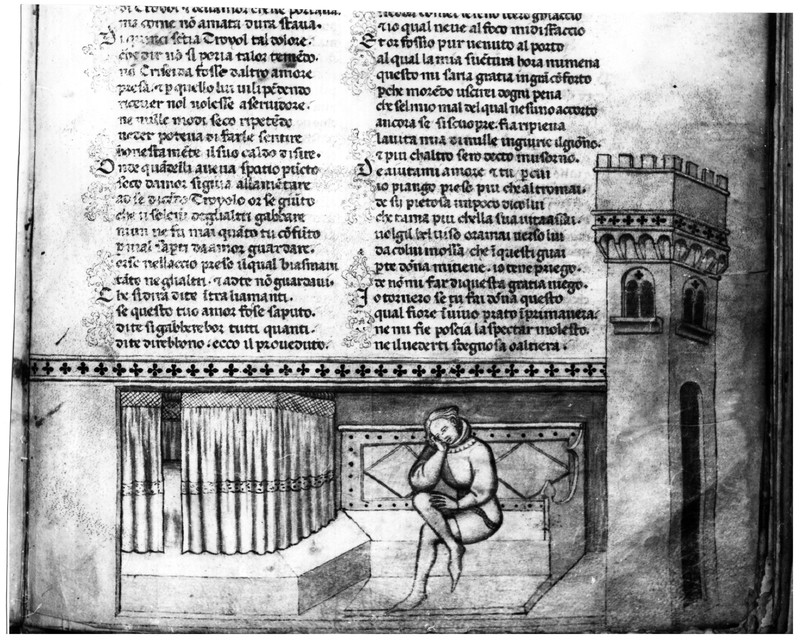 ma come nõ amata dura staua·
Di quinci sētia Troyol tal dolore·
che dir nõ si poria talor temēdo·
nõ Criseida fosse daltro amore
presa· ⁊ ꝑ quello lui uilipēdendo
riceuer nol uolesse a seruidore·
ne mille modi seco ripetēdo
ueder poteua di farle sentire
honestamēte il suo caldo disire·
Onde quādelli aueua spatio pūcto
seco damor sigiua allamētare
ad se dicēdo Troyolo or se giūto
che ti soleui deglialtri gabbare
niun ne fu mai quāto tu cōsūto
ꝑ mal saꝑti da amor guardare·
or se nellaccio preso il qual biasimaui
tāto neglialtri· ⁊ adte nõ guardaui·
Che si dira dite ītra liamanti·
se questo tuo amor fosse saputo·
dite si gabberebor tutti quanti·
dite direbbono· ecco il proueduto·
⁊ io qual neue al foco mi disfaccio
Et or fossio pur uenuto al porto
al qual la mia suētura hora mi mena
questo mi saria gratia ⁊ gran cōforto
ꝑche morēdo uscirei dogni pena
che sel mio mal del qual nesũo accorto
ancora se· si scuopre· fia ripiena
la uita mia di mille ingiurie il giōno·
⁊ piu chaltro sero decto musorno·
De aiutami amore ⁊ tu ꝑ cui
io piango preso piu che altro mai·
de sii pietosa un poco di colui
che tama piu chella sua uita assai·
uolgi il bel uiso oramai uerso lui
da colui mossa che ī questi guai
ꝑ te dōna mi tiene· io te ne priego·
de nõ mi far di questa gratia niego·
Io tornero se tu fai dōna questo
qual fiore ī nuouo prato ī primauera·
ne mi fie poscia laspectar molesto·
ne il uederti sdegnosa o altiera·